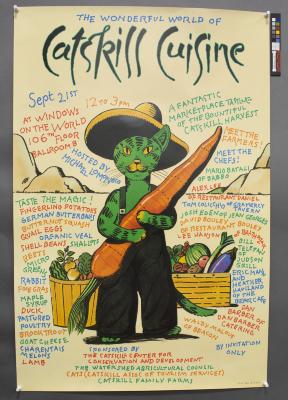 THE WONDERFUL WORLD OF
Catskill Cuisine
Sept 21st
12 to 3pm
AT WINDOWS
ON THE WORLD
106TH FLOOR
BALLROOM B
HOSTED BY
MICHAEL
A FANTASTIC
MARKETPLACE TASTING
OF THE BOUNTIFUL
CATSKILL HARVEST
MEET THE
FARMERS!
MEET THE
CHEFS!
MARIO BATALI
OF BABBO
ALEX LEE
OF RESTAURANT DANIEL
TOM COLICCHIO OF GRAMERCY
TAVERN
JOSH EDEN OF JEAN GEORGES
DAVID BOULEY
OF RESTAURANT BOULEY
LEE HANSON
BILL
TELEPAN
OF
JUDSON
GRILL
ERIC MANN
AND
HEATHER
OF THE
DAN
BARBER OF
DAN BARBER
CATERING
WALDY MALOUF
OF BEACON
TASTE THE MAGIC!
FINGERLING POTATOES
GERMAN BUTTERBALLS
BUTTERNUT SQUASH
QUAIL EGGS
ORGANIC VEAL
SHELL BEANS SHALLOTS
BEETS
MICRO
GREENS
RABBIT
FOIE GRAS
MAPLE
SYRUP
DUCK
PASTURED
POULTRY
BROOK TROUT
GOAT CHEESE
CHARENTAIS
MELONS
LAMB
BY INVITATION
ONLY
SPONSORED BY
THE CATSKILL CENTER FOR
CONSERVATION AND DEVELOPMENT
THE WATERSHED AGRICULTURAL COUNCIL
CATS (CATSKILL ASSOC OF TOURISM SERVICES)
CATSKILL FAMILY FARMS